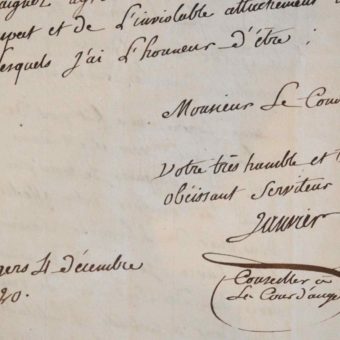 aigner agré
spect et de L'inviolable attachement a
lesquels j'ai L'honneur d'être ;
Monsieur Le Com
Votre très humble et t
Obéissant Serviteur
Janvier
gers 4 décembre
20.
Conseiller à
La Cour d'ange